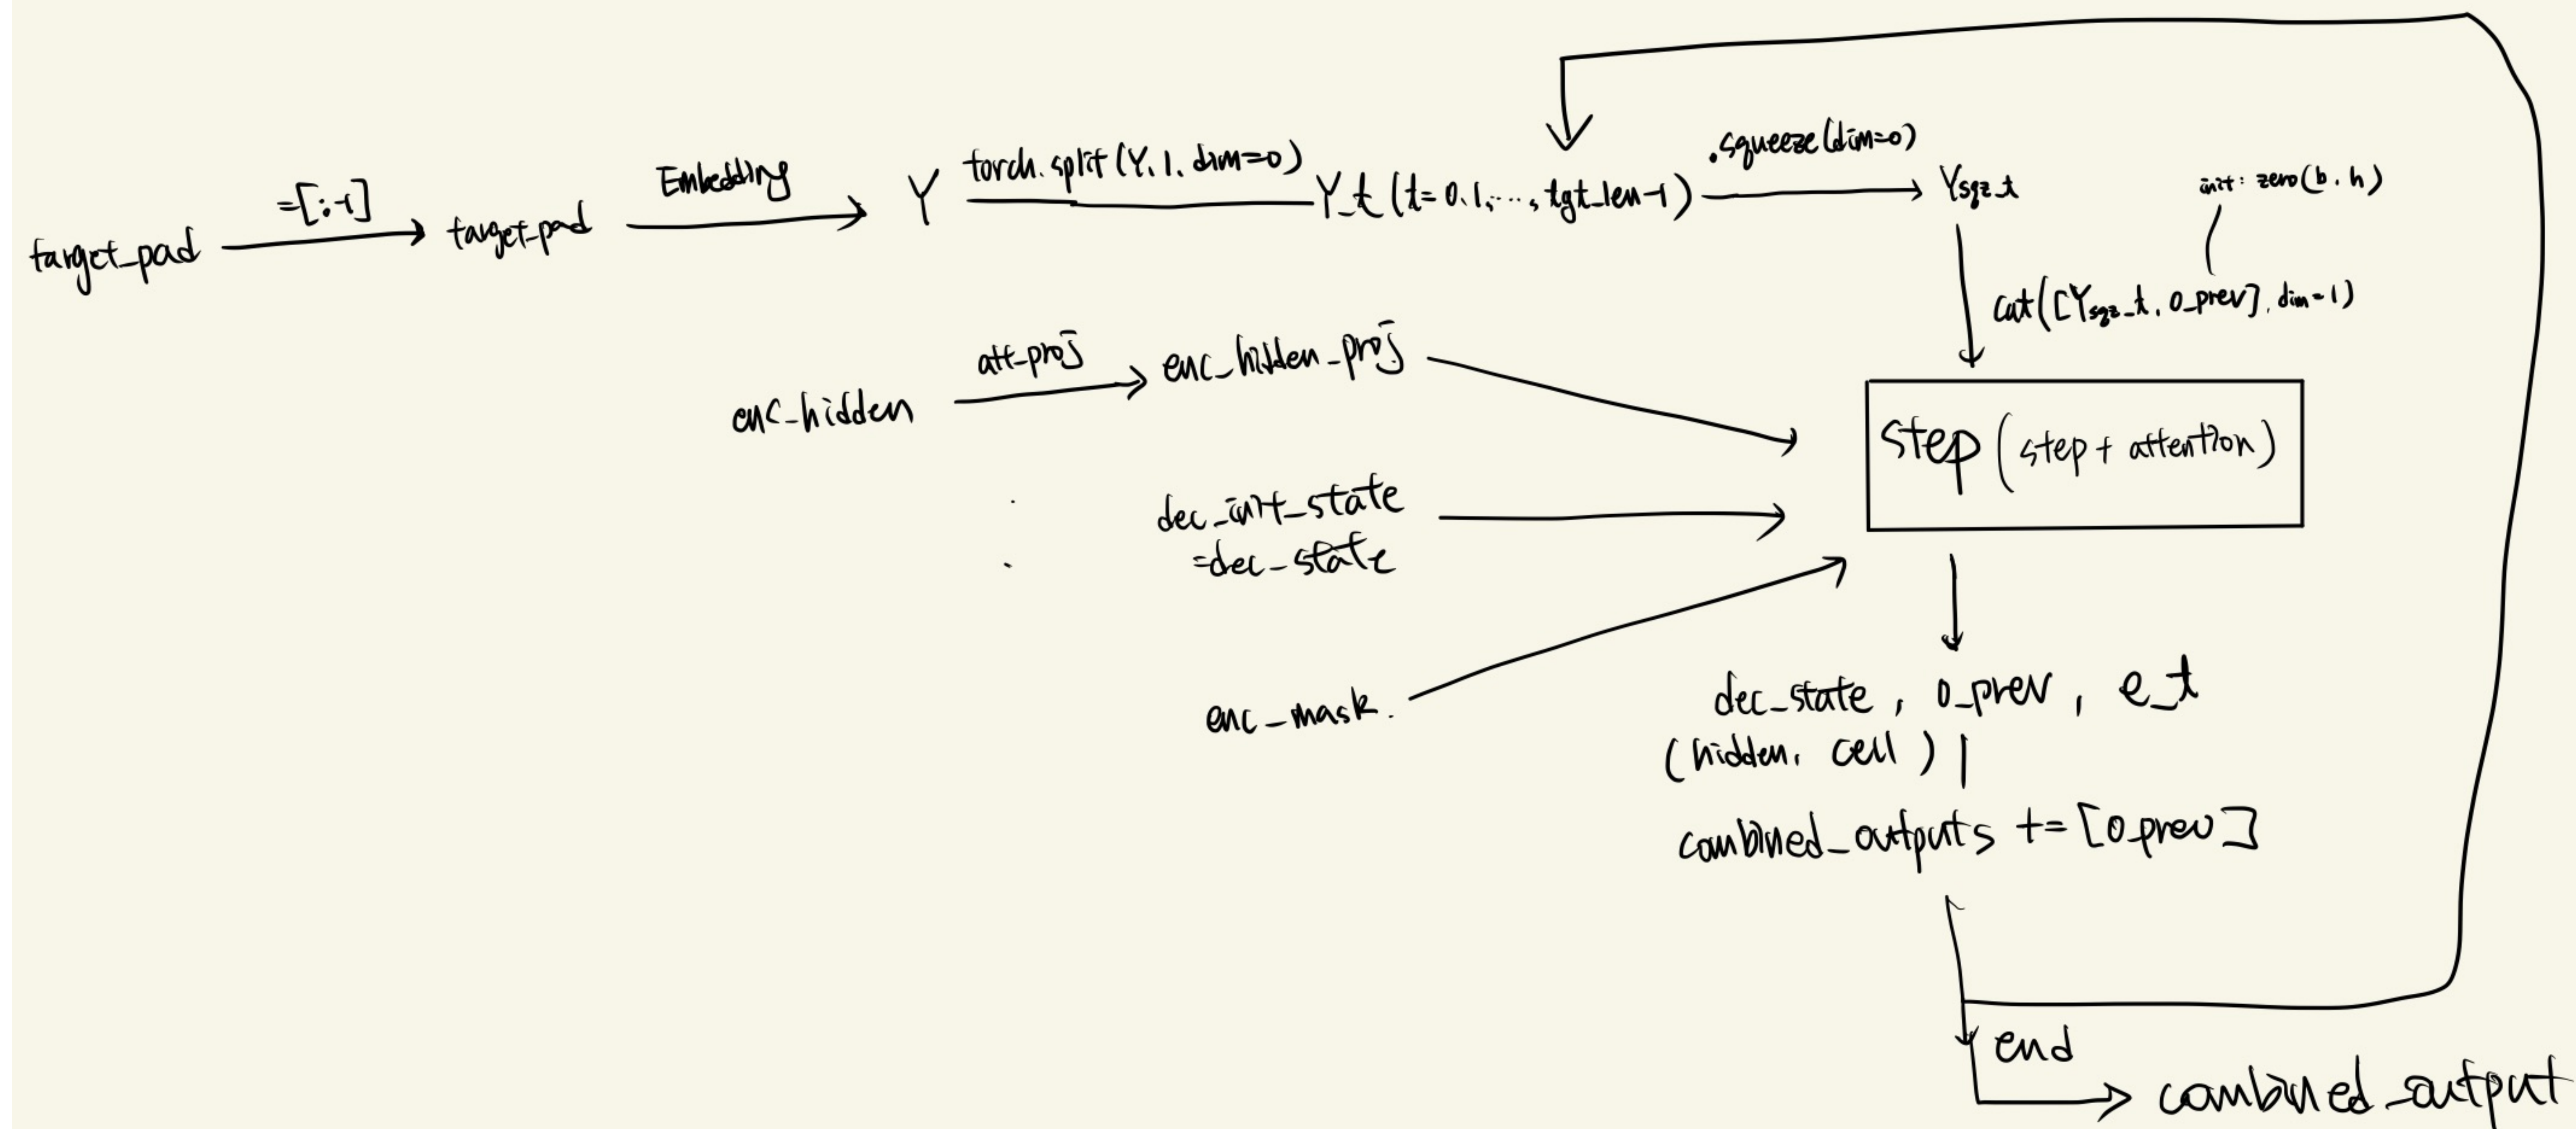 target_pad
=[:-1]
target_pad
Embedding
Y
torch.split(Y, 1, dim=0)
Y_t (t=0,1,..., tgt_len-1)
.squeeze(dim=0)
Ysqz_t
init: zero(b, h)
cat([Ysqz_t, o_prev], dim=1)
enc_hidden
att_proj
enc_hidden_proj
step (step + attention)
dec_init_state
=dec_state
enc_mask.
dec_state, o_prev, e_t
(hidden, cell)
combined_outputs += [o_prev]
end
combined_output